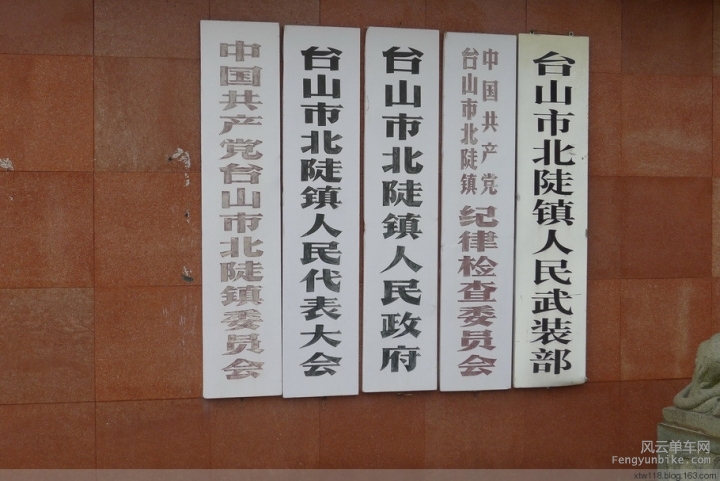 中国共产党台山市北陡镇委员会
台山市北陡镇人民代表大会
台山市北陡镇人民政府
中国共产党
台山市北陡镇
纪律检查委员会
台山市北陡镇人民武装部
风云单车网
Fengyunbike.com
xlw118.blog.163.com